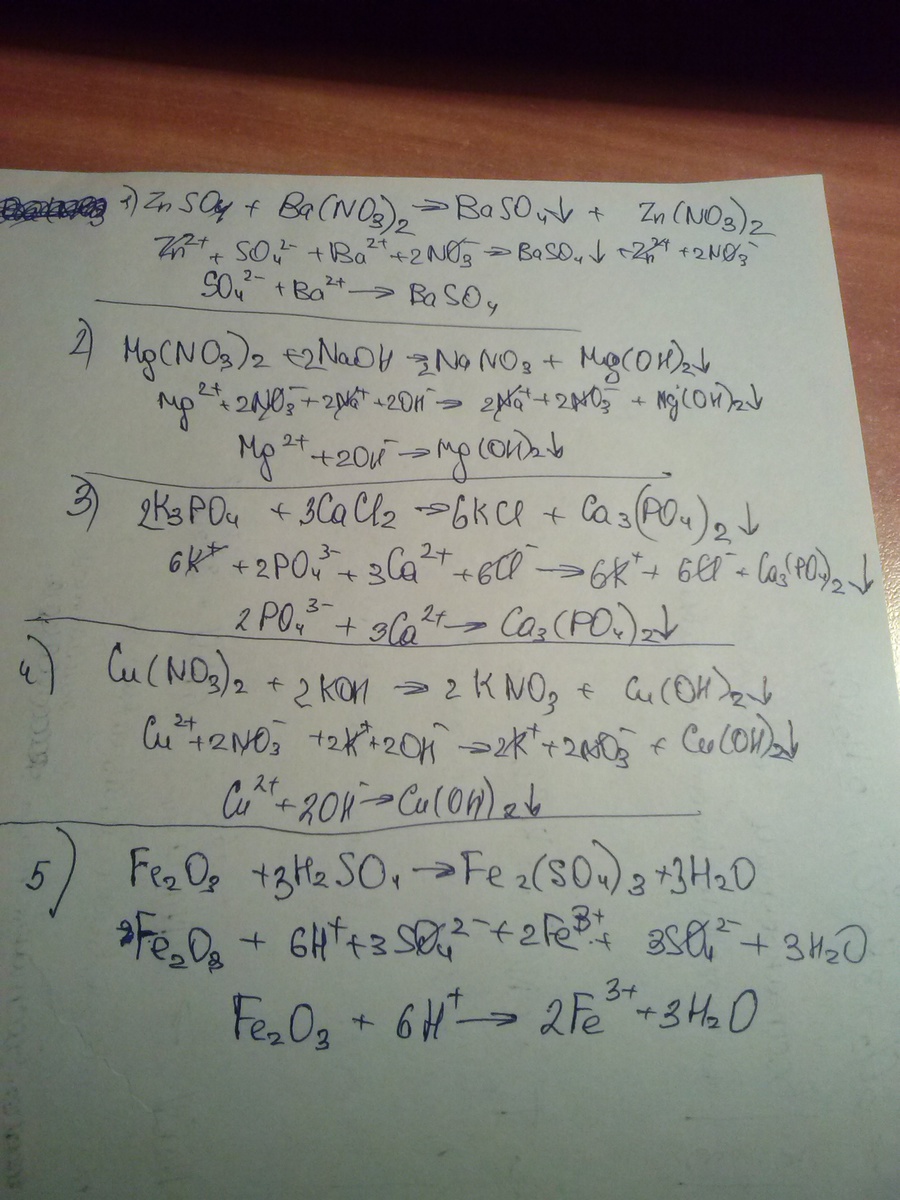 1) ZnSO₄ + Ba(NO₃)₂ → BaSO₄↓ + Zn(NO₃)₂
Zn²⁺ + SO₄²⁻ + Ba²⁺ + 2NO₃⁻ → BaSO₄↓ + Zn²⁺ + 2NO₃⁻
SO₄²⁻ + Ba²⁺ → BaSO₄
2) Mg(NO₃)₂ + 2NaOH → 2NaNO₃ + Mg(OH)₂↓
Mg²⁺ + 2NO₃⁻ + 2Na⁺ + 2OH⁻ → 2Na⁺ + 2NO₃⁻ + Mg(OH)₂↓
Mg²⁺ + 2OH⁻ → Mg(OH)₂↓
3) 2K₃PO₄ + 3CaCl₂ → 6KCl + Ca₃(PO₄)₂↓
6K⁺ + 2PO₄³⁻ + 3Ca²⁺ + 6Cl⁻ → 6K⁺ + 6Cl⁻ + Ca₃(PO₄)₂↓
2PO₄³⁻ + 3Ca²⁺ → Ca₃(PO₄)₂↓
4) Cu(NO₃)₂ + 2KOH → 2KNO₃ + Cu(OH)₂↓
Cu²⁺ + 2NO₃⁻ + 2K⁺ + 2OH⁻ → 2K⁺ + 2NO₃⁻ + Cu(OH)₂↓
Cu²⁺ + 2OH⁻ → Cu(OH)₂↓
5) Fe₂O₃ + 3H₂SO₄ → Fe₂(SO₄)₃ + 3H₂O
Fe₂O₃ + 6H⁺ + 3SO₄²⁻ + 2Fe³⁺ + 3SO₄²⁻ + 3H₂O
Fe₂O₃ + 6H⁺ → 2Fe³⁺ + 3H₂O